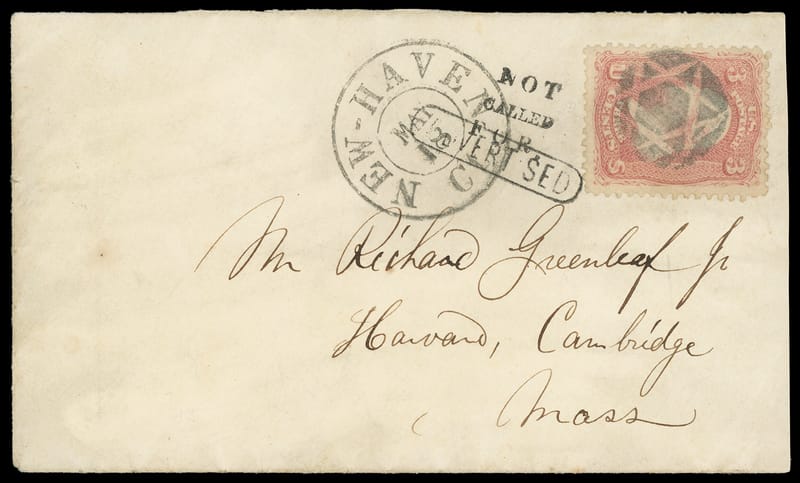 NEW-HAVEN C
MAR
NOT
CALLED
FOR.
ADVERTISED
3 U.S. POSTAGE 3
U CENTS S
Mr Richard Greenleaf Jr
Harvard, Cambridge
Mass